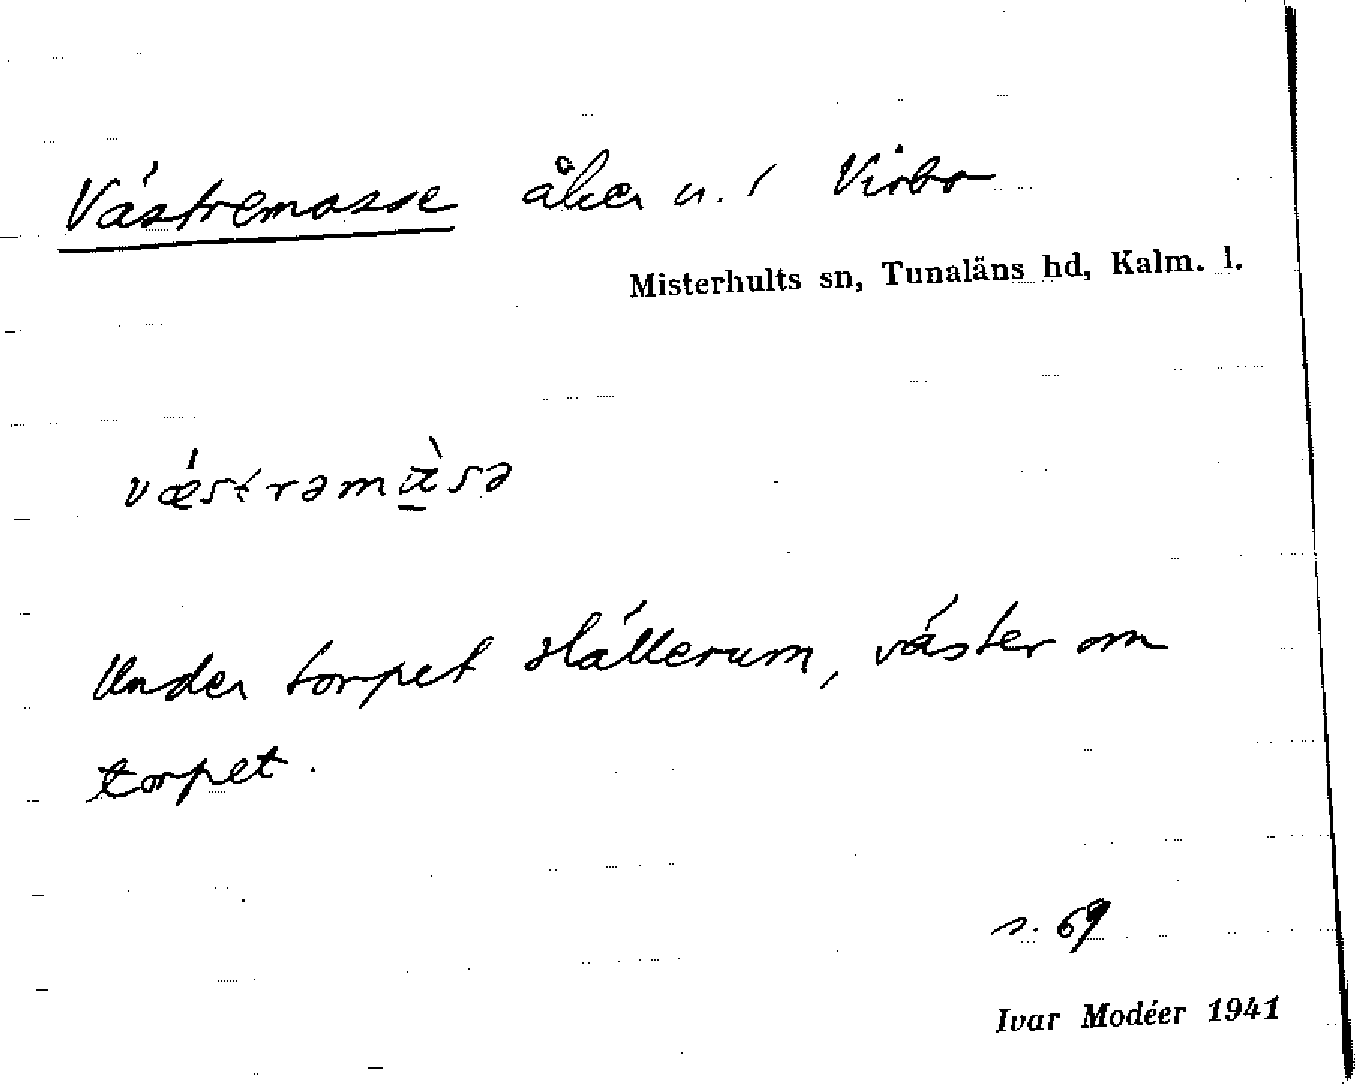 Västremosse åker u. i Virbo
Misterhults sn, Tunaläns hd, Kalm. l.
vǽstrəmæ̀sə
Under torpet Hällerum, väster om
torpet.
s. 69
Ivar Modéer 1941